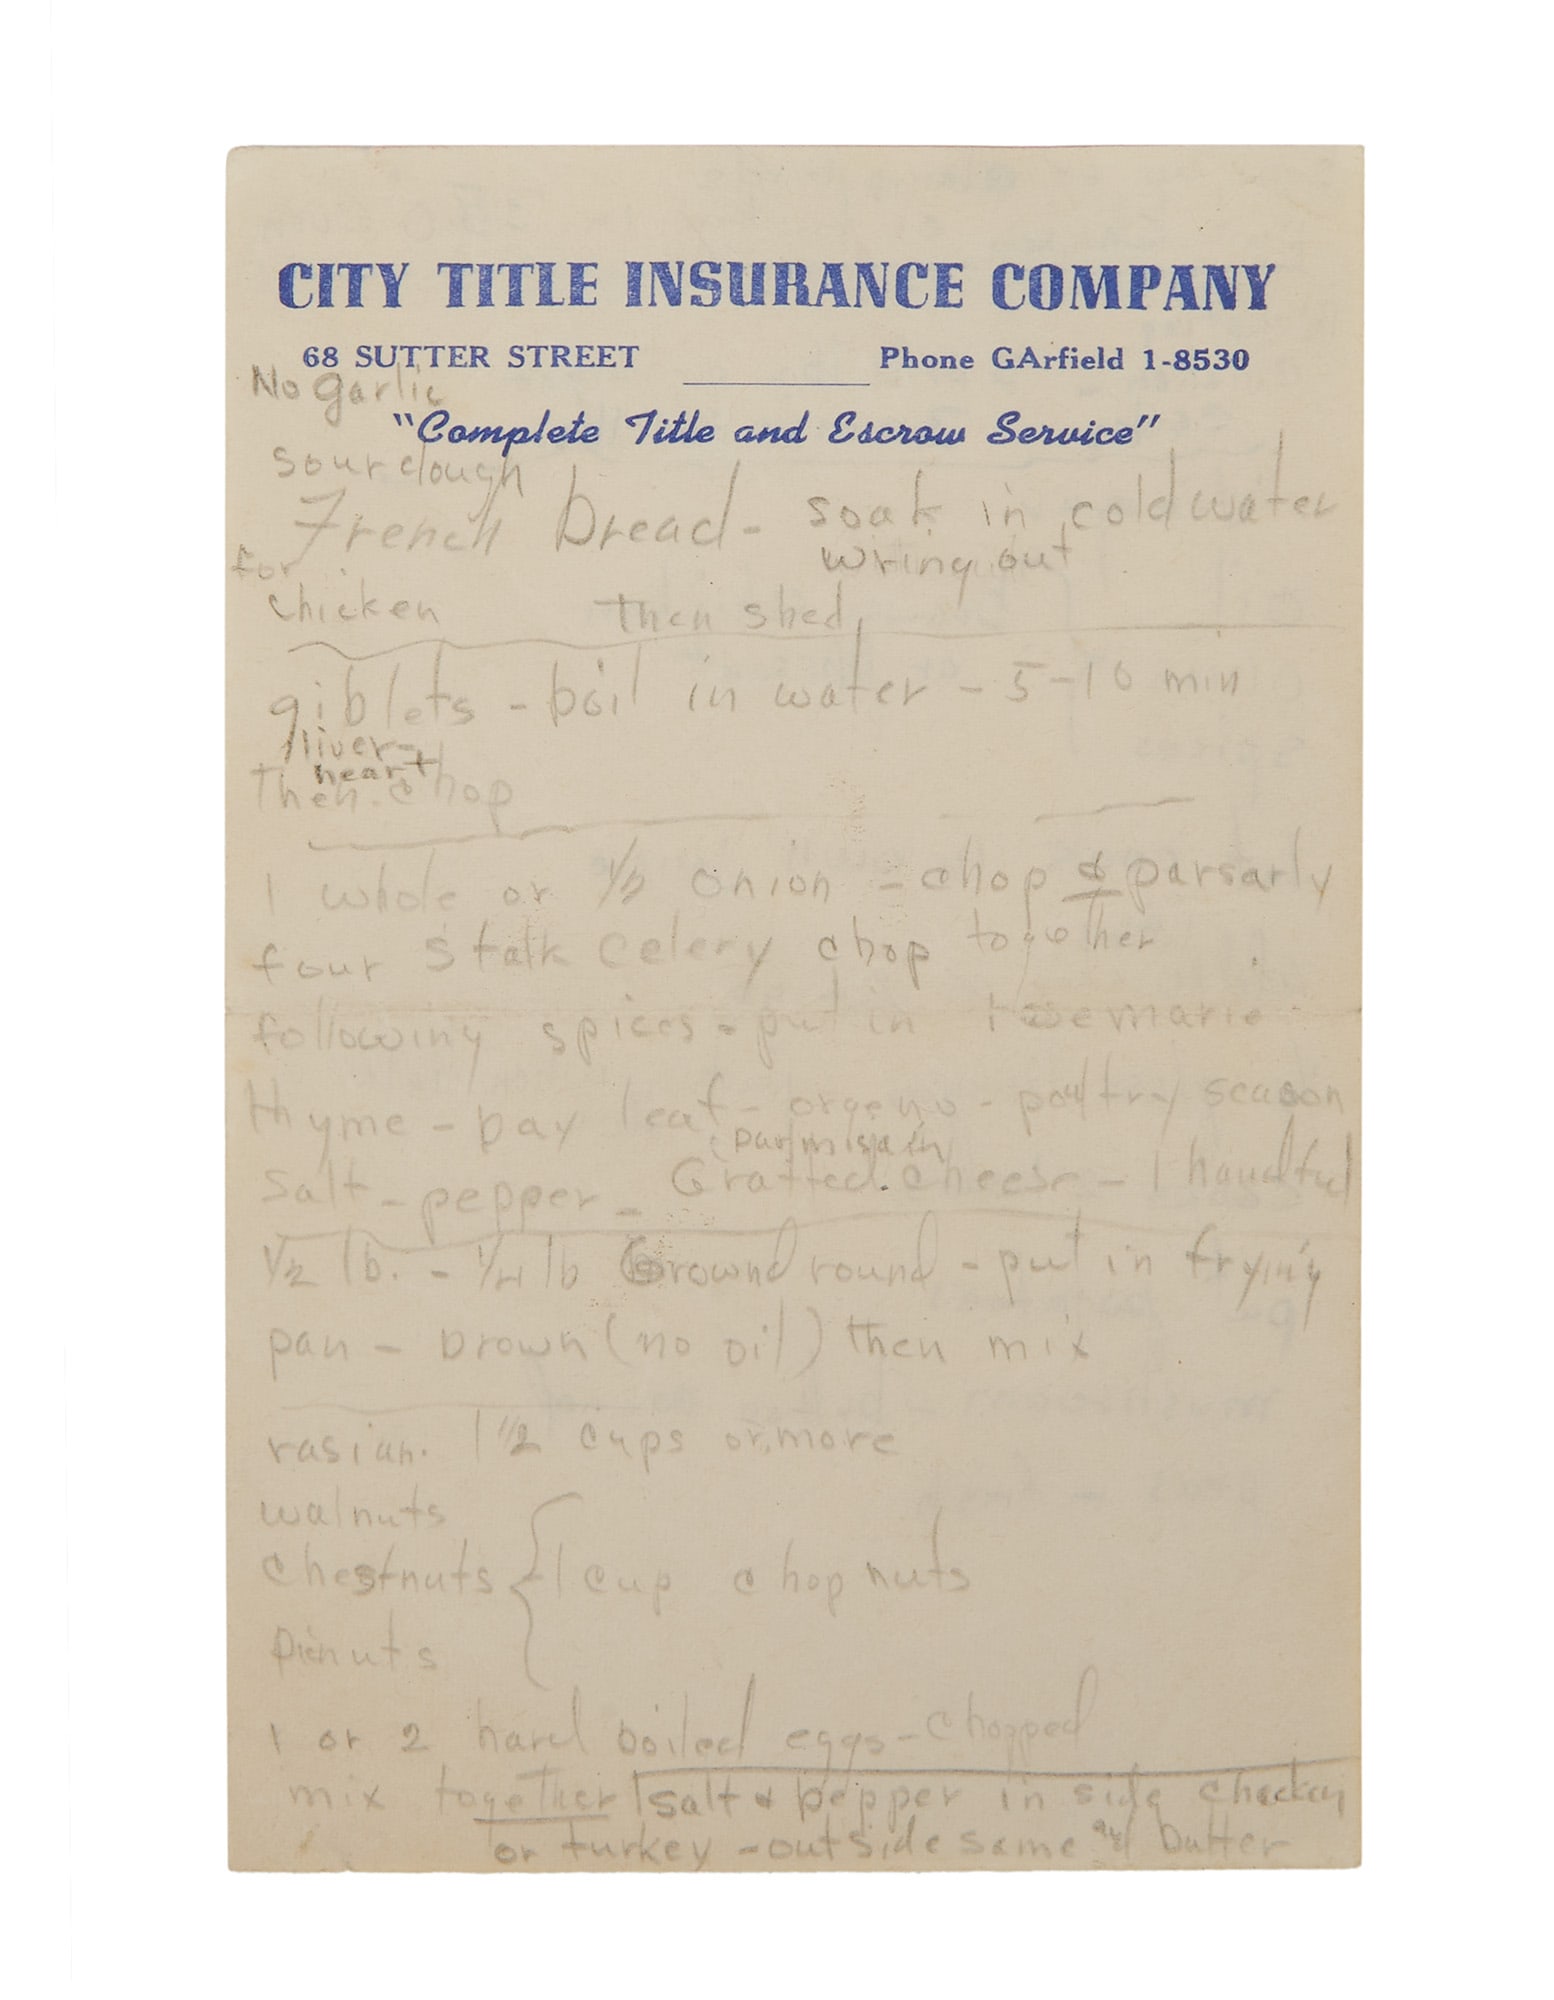 CITY TITLE INSURANCE COMPANY
68 SUTTER STREET Phone GArfield 1-8530
No garlic
"Complete Title and Escrow Service"
sourdough
French Bread - soak in cold water
wring out
for
chicken then shed
giblets - boil in water - 5-10 min
liver-
heart
then chop
1 whole or 1/2 onion - chop & parsarly
four stalk celery chop together
following spices - put in rosemarie
thyme - bay leaf - orgeno - poultry season
(parmisain
salt - pepper - Gratted cheese - 1 handful
1/2 lb. - 1/4 lb Ground round - put in frying
pan - brown (no oil) then mix
rasian. 1 1/2 cups or more
walnuts
chestnuts { 1 cup chop nuts
pienuts
1 or 2 hard boiled eggs - chopped
mix together salt & pepper in side checken
or turkey - outside same and butter